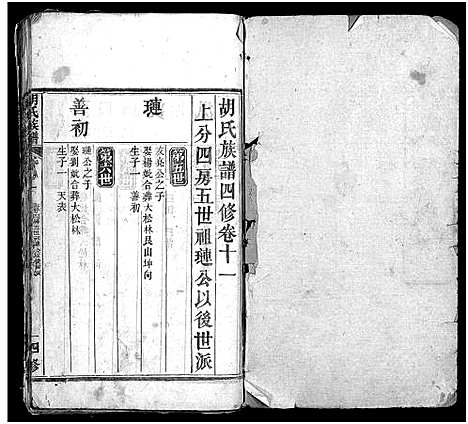 胡氏族譜四修卷十一
上分四房五世祖璉公以後世派
第五世
璉
公之子
娶楊妣合葬大松林艮山坤向
生子一 善初
第六世
善初
璉公之子
娶劉妣合葬大松林
生子一 天表
胡氏族譜
四修